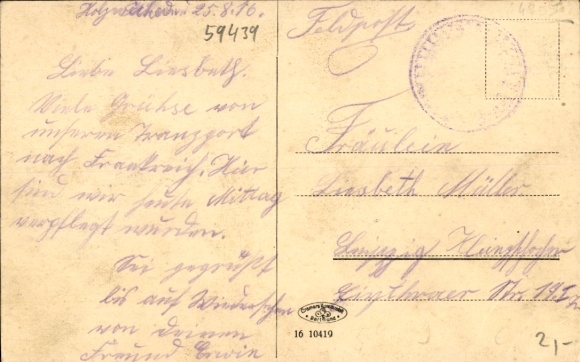 Holzwickede, 25.8.16.
59439
Liebe Liesbeth.
Viele Grühse von
unseren Transport
nach Frankreich. Hier
sind wir heute Mittag
verpflegt wurden.
Sei gegrüßt
bis auf Wiedersehen
von deinem
Freund Erwin
Feldpost
Fräulein
Liesbeth Müller
Leipzig
Str.
16 10419
2,-